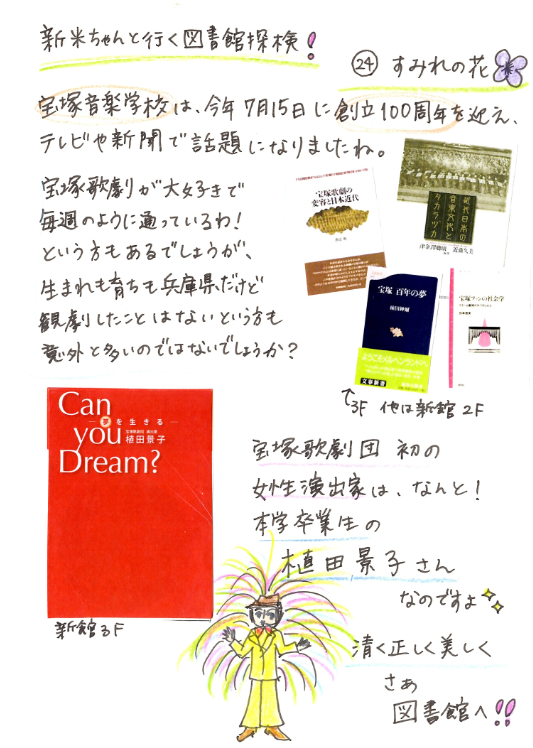 新米ちゃんと行く図書館探検!
㉔ すみれの花
宝塚音楽学校は、今年7月15日に創立100周年を迎え、
テレビや新聞で話題になりましたね。
宝塚歌劇が大好きで
毎週のように通っているわ!
という方もあるでしょうが、
生まれも育ちも兵庫県だけど
観劇したことはないという方も
意外と多いのではないでしょうか?
宝塚歌劇の
変容と日本近代
近代日本の
音楽文化と
タカラヅカ
宝塚 百年の夢
植田紳爾
ようこそメルヘンランドへ
文春新書
↑3F 他は新館2F
Can
you
Dream?
夢を生きる
植田景子
新館3F
宝塚歌劇団 初の
女性演出家は、なんと!
本学卒業生の
植田景子さん
なのですよ
清く正しく美しく
さあ
図書館へ!!